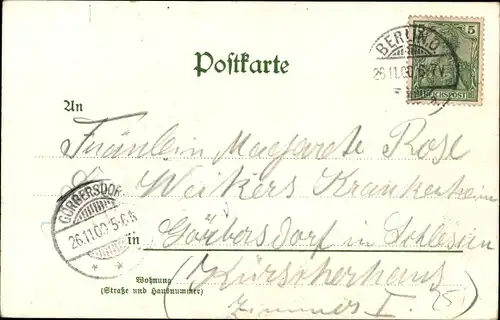 Postkarte
5
REICHSPOST
BERLIN
26.11.00 6-7 V.
An
Fräulein Margarete Rose
Weikers Krankenheim
GÖRBERSDORF
26.11.00 5-6 N.
in Görbersdorf in Schlesien
Wohnung
(Straße und Hausnummer)
(Kürscherhaus
Zimmer I. 25)